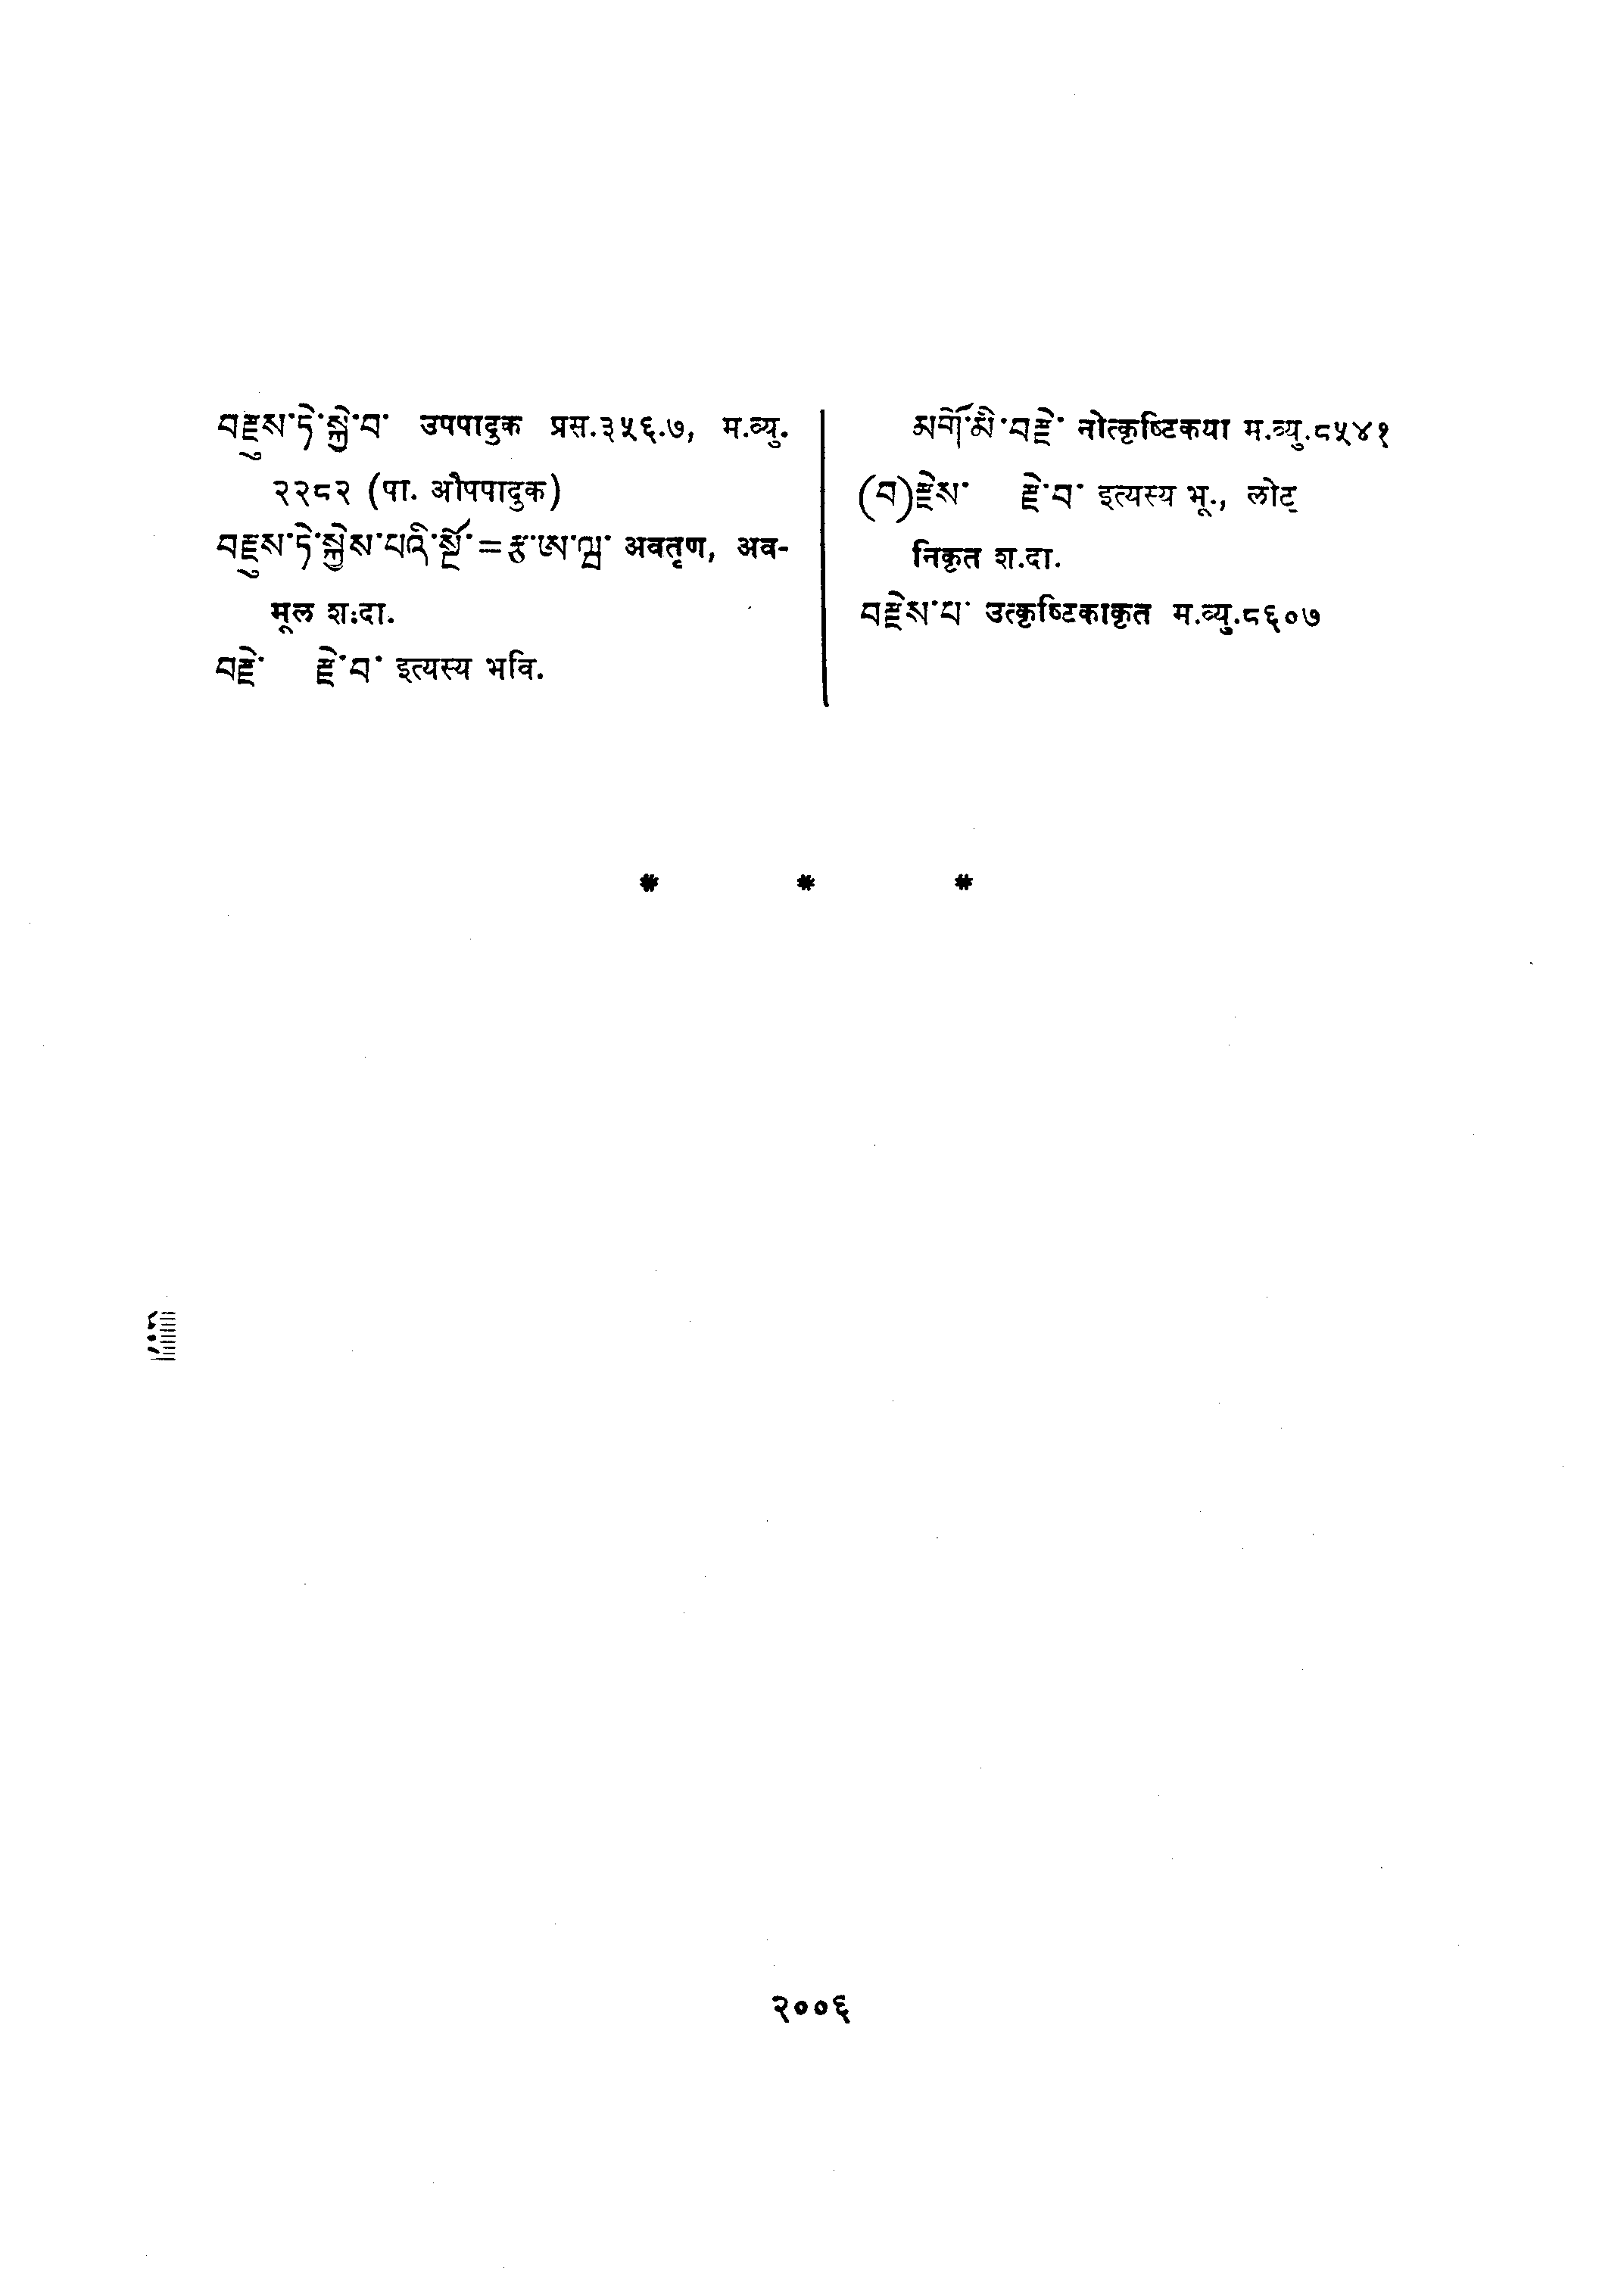 བརྫུས་ཏེ་སྐྱེ་བ་ उपपादुक प्रस.३५६.७, म.व्यु.
२२८२ (पा. औपपादुक)
བརྫུས་ཏེ་སྐྱེས་པའི་སྔོ་=རྩྭ་ཨ་ལྦ་ अवतृण, अव-
मूल श.दा.
བརྫེ་ རྫེ་བ་ इत्यस्य भवि.
མགོ་མི་བརྫེ་ नोत्कृष्टिकया म.व्यु.८५४१
(བ)རྫེས་ རྫེ་བ་ इत्यस्य भू., लोट्
निकृत श.दा.
བརྫེས་པ་ उत्कृष्टिकाकृत म.व्यु.८६०७
* * *
२००६